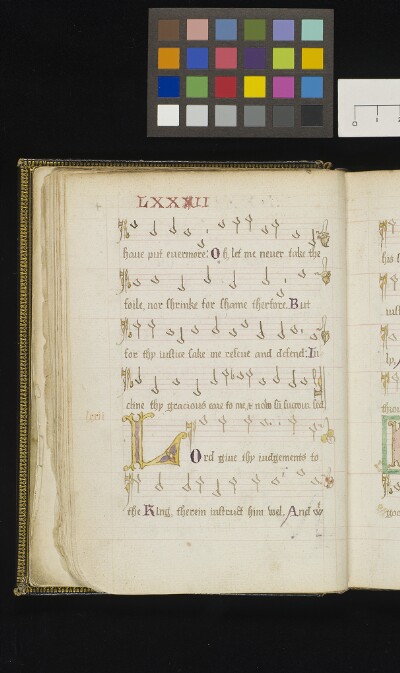 LXXXII
haue put euermore: Oh, let me neuer take the
foile, nor shrinke for shame therfore. But
for thy iustice sake me rescue and defend; In
cline thy gracious eare to me, & now succour
lxxii
LOrd giue thy iudgements to
the King, therein instruct him wel, And w